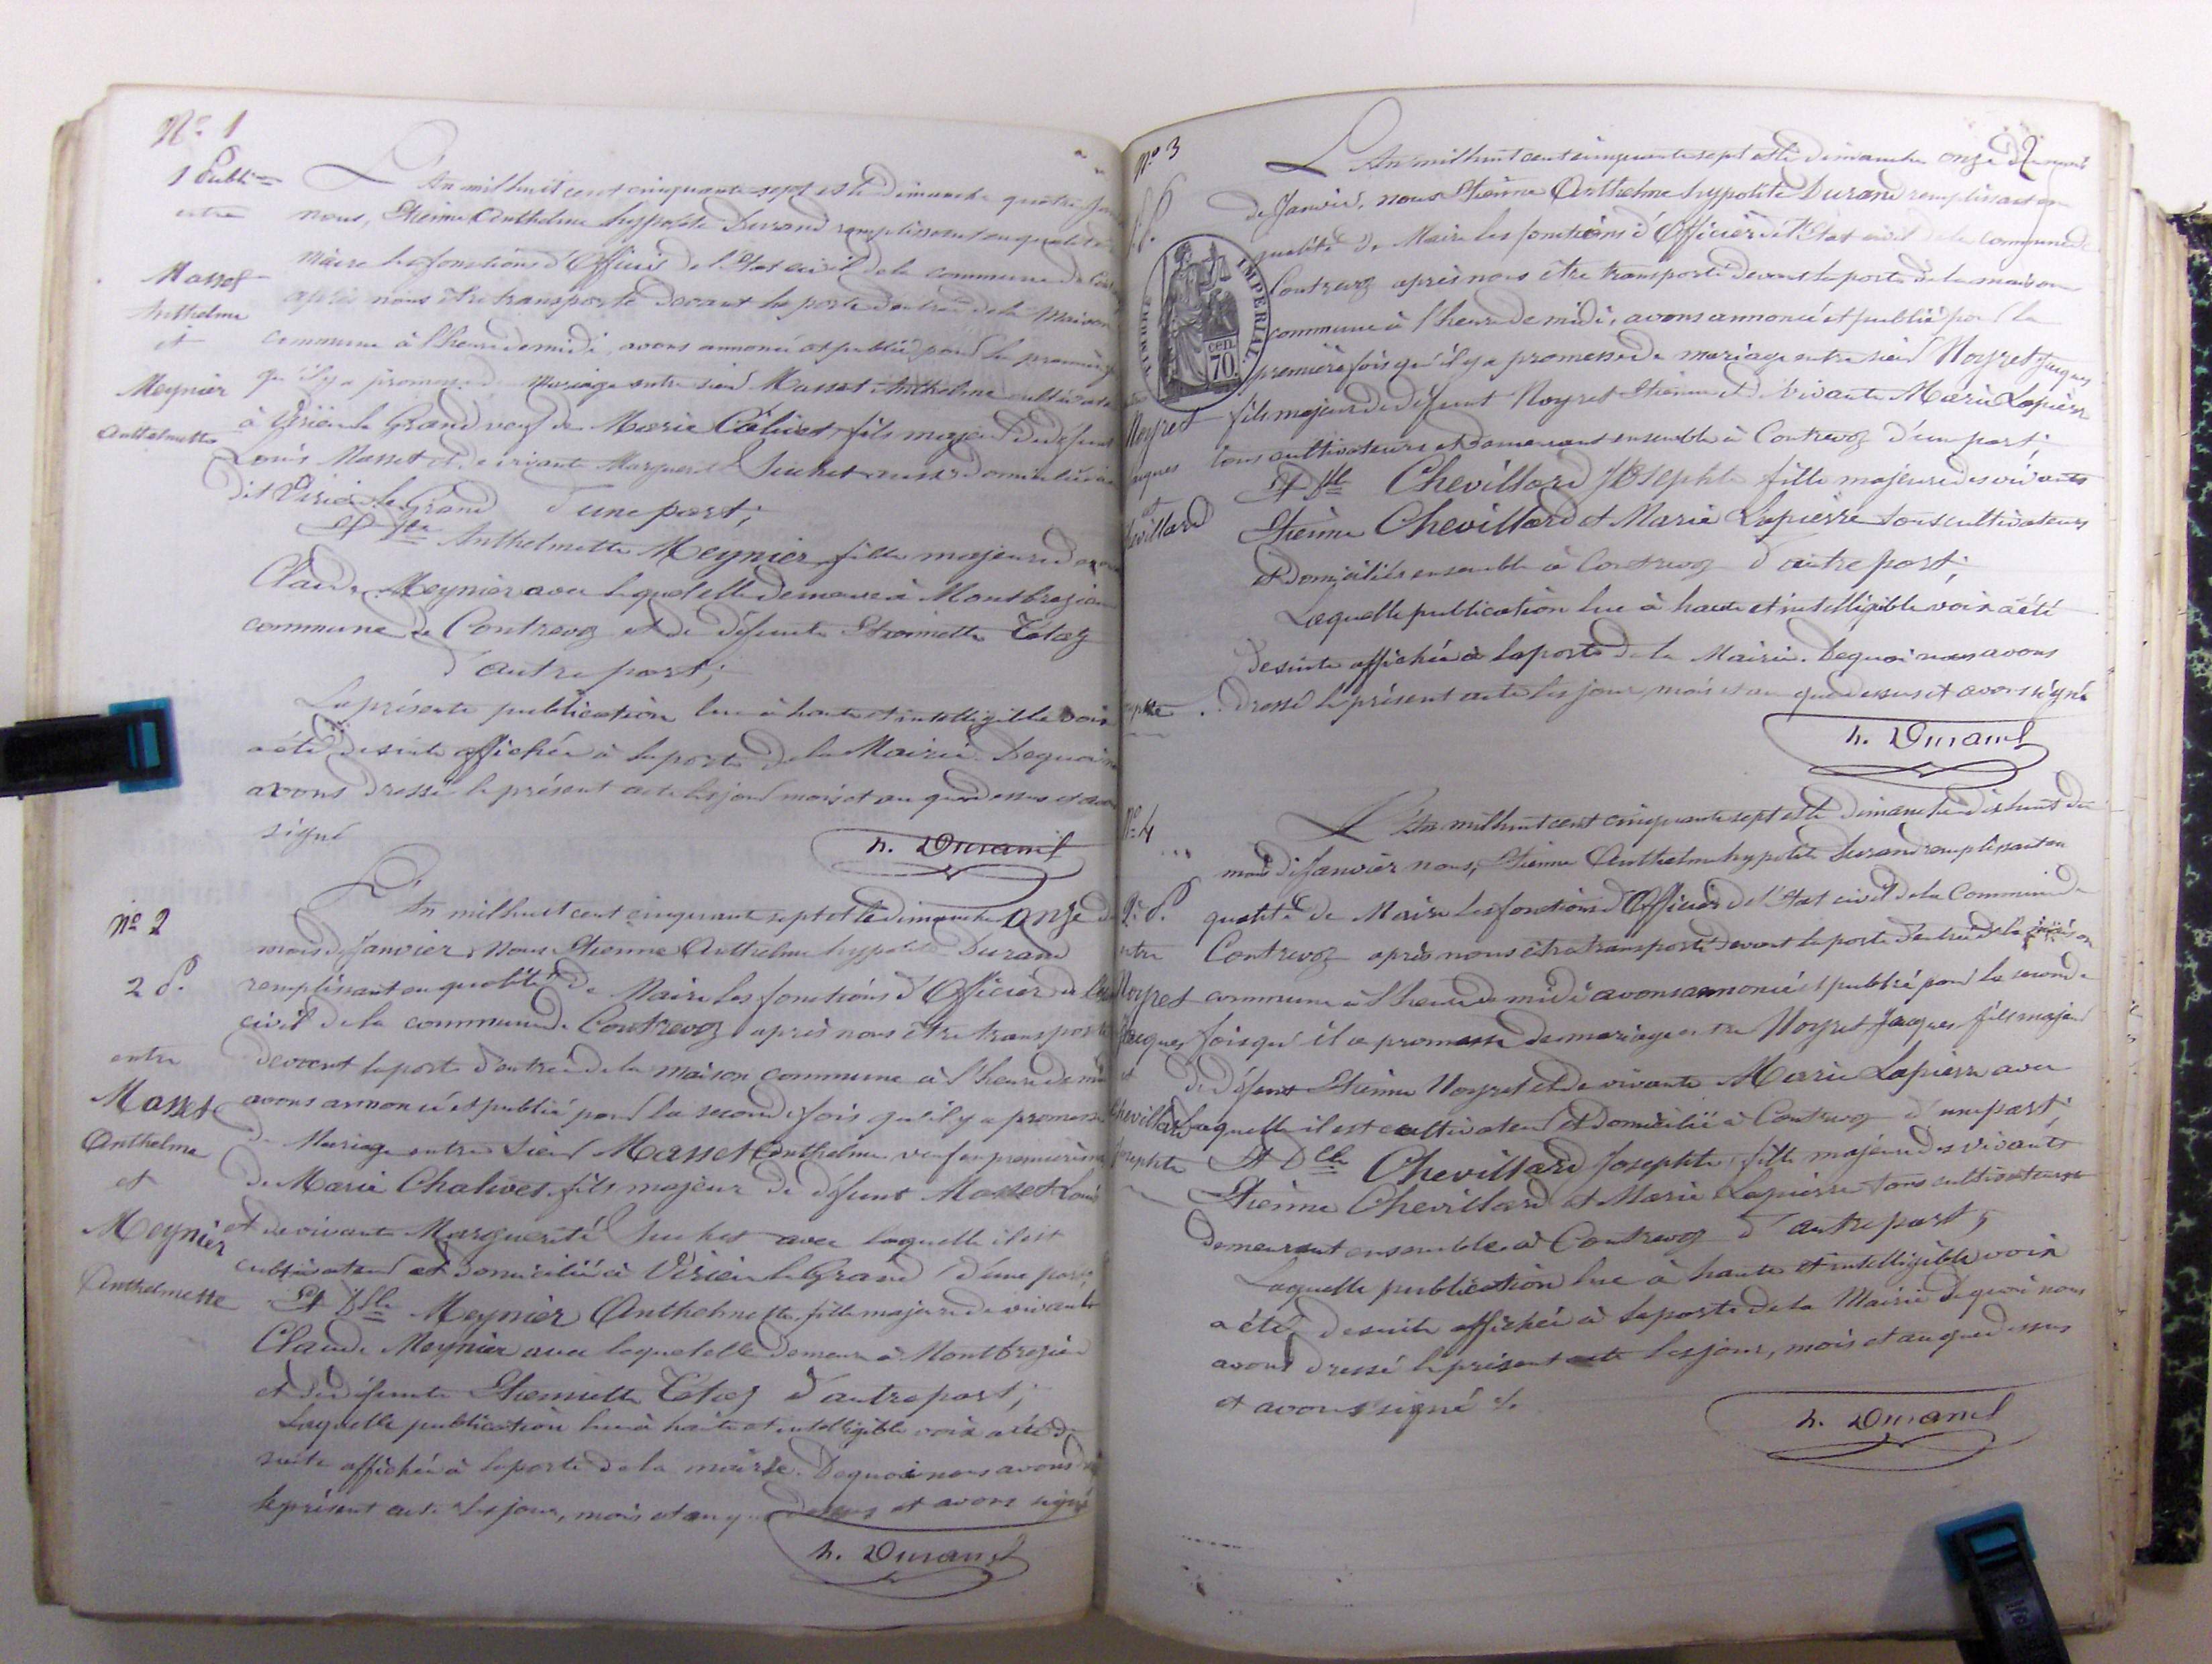 N° 1
1 Publion
entre
Masset
Anthelme
et
Meynier
Anthelmette
L'An mil huit cent cinquante sept et le dimanche quatre Jan
nous, Etienne Anthelme hyppolite Durand remplissant en qualité de
Maire les fonctions d'Officier de l'Etat civil de la commune de
après nous être transporté devant la porte d'entrée de la Maison
Commune à l'heure de midi, avons annoncé et publié pour la première
qu'il y a promesse de Mariage entre sieur Masset Anthelme cultivate
à Virieu le Grand veuf de Marie fils majeur de défunt
Louis Masset et de vivante Marguerite Suchet aussi domiciliée
dit Virieu le Grand d'une part;
Et Dlle Anthelmette Meynier, fille majeure de
Claude Meynier avec lequel elle demeure à Montbrezieu
commune de Contrevoz et de défunte Etiennette Tétaz
d'autre part;
La présente publication lue à haute et intelligible voix
a été desuite affichée à la porte de la Mairie. Dequoi
avons dressé le présent acte les jour mois et an que dessus et avons
signé
h. Durand
N° 2
2 P.
entre
Masset
Anthelme
et
Meynier
Anthelmette
L'An mil huit cent cinquante sept et le dimanche onze du
mois de Janvier, Nous Etienne Anthelme hyppolite Durand
remplissant en qualité de Maire les fonctions d'Officier de l'Etat
civil de la commune de Contrevoz après nous être transporté
devant la porte d'entrée de la maison commune à l'heure de midi
avons annoncé et publié pour la seconde fois qu'il y a promesse
de Mariage entre sieur Masset Anthelme veuf en premières
de Marie Chalivet fils majeur de défunt Masset Louis
et de vivante Marguerite Suchet avec laquelle il est
cultivateur et domicilié à Virieu le Grand d'une part;
Et Dlle Meynier Anthelmette fille majeure de vivant
Claude Meynier avec lequel elle demeure à Montbrezieu
et de défunte Etiennette Tétaz d'autre part;
Laquelle publication lue à haute et intelligible voix a été de
suite affichée à la porte de la mairie. Dequoi nous avons
le présent acte les jour, mois et an que dessus et avons signé
h. Durand
N° 3
P.
TIMBRE IMPERIAL.
cen.
70.
Noyret
Jaques
et
Chevillard
Josephte
L'An mil huit cent cinquante sept et le dimanche onze du mois
2
de Janvier, nous Etienne Anthelme hypolite Durand remplissant en
qualité de Maire les fonctions d'Officier de l'Etat civil de la commune de
Contrevoz après nous être transporté devant la porte de la maison
commune à l'heure de midi, avons annoncé et publié pour la
première fois qu'il y a promesse de mariage entre sieur Noyret Jaques
fils majeur de défunt Noyret Etienne et de vivante Marie Lapierre
tous cultivateurs et demeurant ensemble à Contrevoz d'une part;
Et Dlle Chevillard Josephte fille majeure des vivants
Etienne Chevillard et Marie Lapierre tous cultivateurs
et domiciliés ensemble à Contrevoz d'autre part;
Laquelle publication lue à haute et intelligible voix a été
desuite affichée à la porte de la Mairie. Dequoi nous avons
dressé le présent acte les jour mois et an que dessus et avons signé
h. Durand
N° 4
2e P.
entre
Noyret
Jacques
et
Chevillard
Josephte
L'An mil huit cent cinquante sept et le dimanche dix huit du
mois de Janvier nous, Etienne Anthelme hypolite Durand remplissant en
qualité de Maire les fonctions d'Officier de l'Etat civil de la Commune de
Contrevoz après nous être transporté devant la porte d'entrée de la maison
commune à l'heure de midi avons annoncé et publié pour la seconde
fois qu'il a promesse de mariage entre Noyret Jacques fils majeur
de défunt Etienne Noyret et de vivante Marie Lapierre avec
laquelle il est cultivateur et domicilié à Contrevoz d'une part;
Et Dlle Chevillard Josephte fille majeure des vivants
Etienne Chevillard et Marie Lapierre tous cultivateurs
demeurant ensemble à Contrevoz d'autre part;
Laquelle publication lue à haute et intelligible voix
a été desuite affichée à la porte de la Mairie Dequoi nous
avons dressé le présent acte les jour, mois et an que dessus
et avons signé
h. Durand